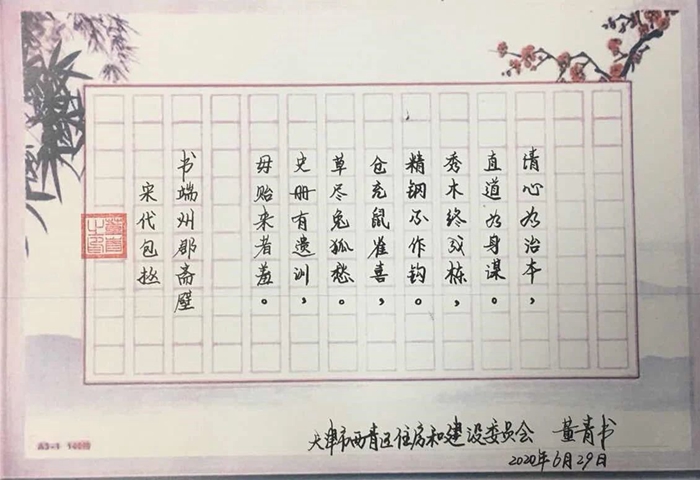 清心为治本，
直道为身谋。
秀木终成栋，
精钢不作钩。
仓充鼠雀喜，
草尽兔狐愁。
史册有遗训，
毋贻来者羞。
书端州郡斋壁
宋代包拯
天津市西青区住房和建设委员会 董青书
2020年6月29日
A3-1